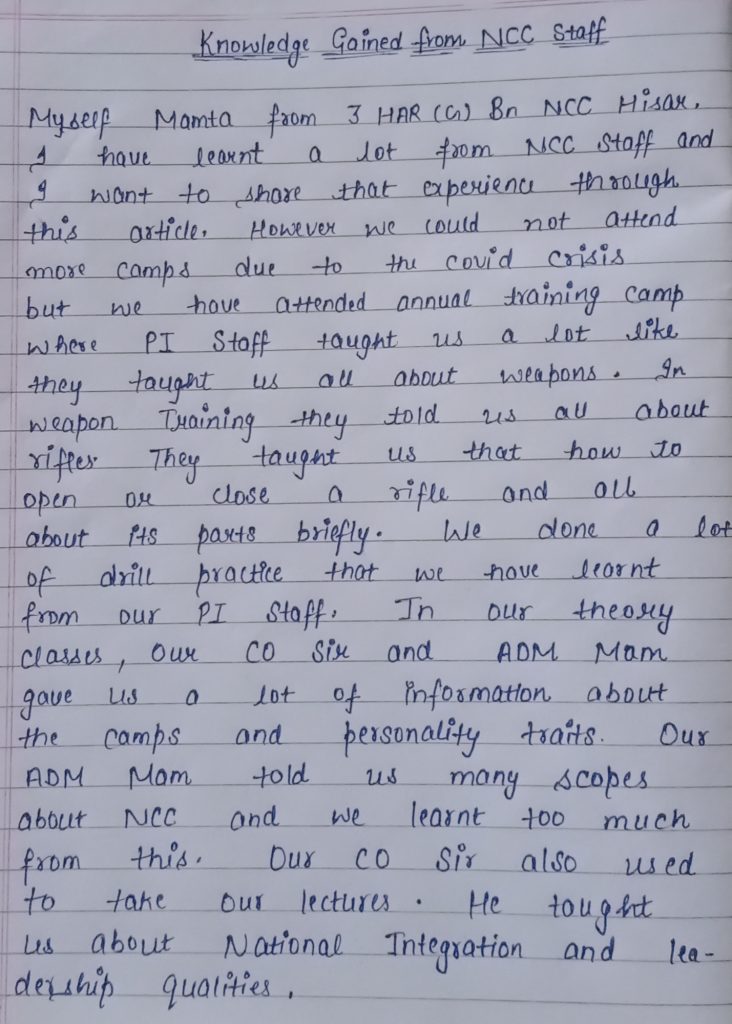 Knowledge Gained from NCC Staff
Myself Mamta from 3 HAR (G) Bn NCC Hisar.
I have learnt a lot from NCC Staff and
I want to share that experience through
this article. However we could not attend
more camps due to the covid crisis
but we have attended annual training camp
where PI Staff taught us a lot like
they taught us all about weapons. In
weapon Training they told us all about
rifles. They taught us that how to
open or close a rifle and all
about its parts briefly. We done a lot
of drill practice that we have learnt
from our PI Staff. In our theory
classes, our CO Sir and ADM Mam
gave us a lot of information about
the camps and personality traits. Our
ADM Mam told us many scopes
about NCC and we learnt too much
from this. Our CO Sir also used
to take our lectures. He taught
us about National Integration and lea-
dership qualities.